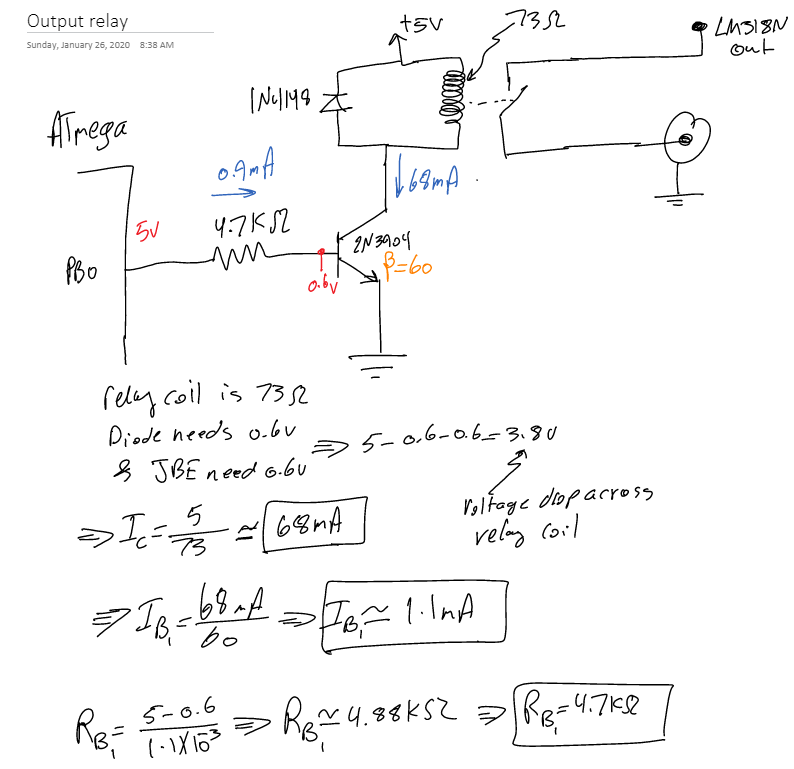 Output relay
Sunday, January 26, 2020 8:38 AM
+5V
73Ω
LM318N
out
1N4148
ATmega
0.9mA
68mA
5V
4.7KΩ
2N3904
PB0
β=60
0.6V
relay coil is 73Ω
Diode needs 0.6V
& JBE need 0.6V
⇒ 5-0.6-0.6=3.8V
voltage drop across
relay coil
⇒ I_C = 5/73 ≃ 68mA
⇒ I_B1 = 68mA/60 ⇒ I_B1 ≃ 1.1mA
R_B1 = (5-0.6)/(1.1×10^-3) ⇒ R_B1 ≃ 4.88KΩ ⇒ R_B1 = 4.7KΩ